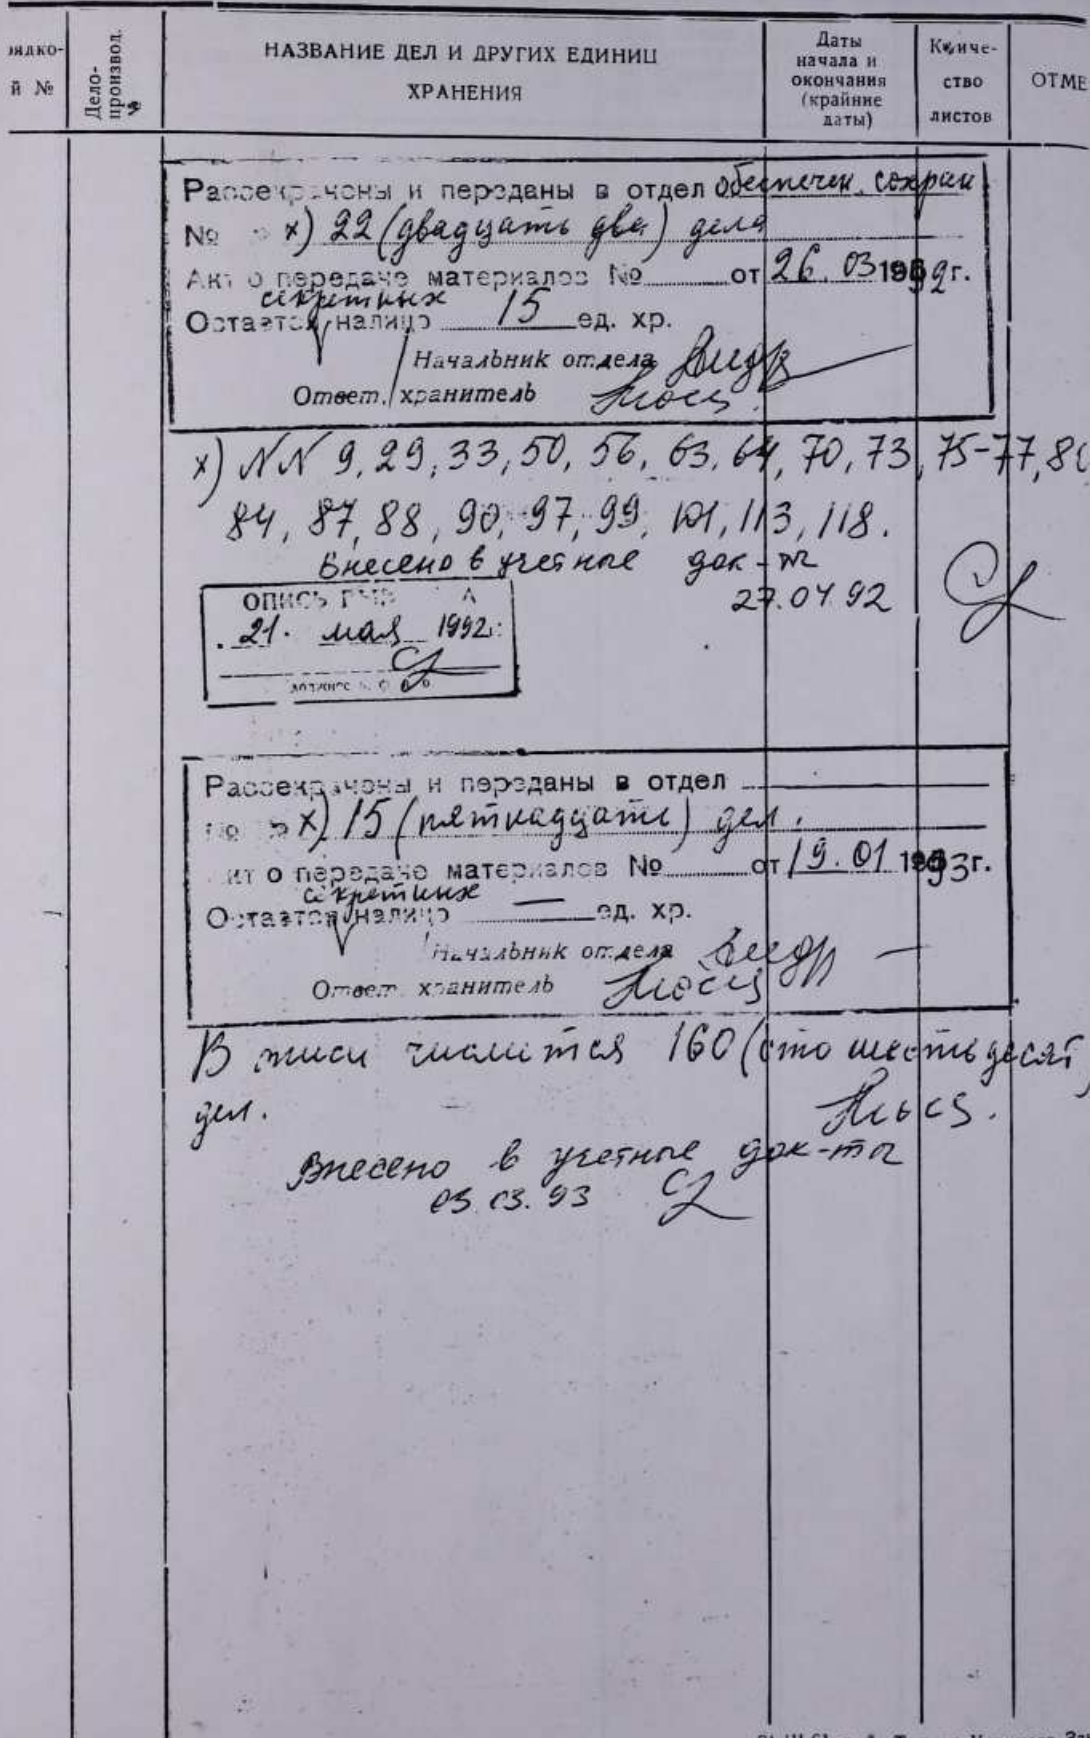 рядко-
й №
Дело-
производ.
№
НАЗВАНИЕ ДЕЛ И ДРУГИХ ЕДИНИЦ
ХРАНЕНИЯ
Даты
начала и
окончания
(крайние
даты)
Количе-
ство
листов
ОТМЕ
Рассекречены и переданы в отдел обеспечен. сохран
№ х) 22 (двадцать два) дела
Акт о передаче материалов № от 26.03 1992 г.
секретных
Остается налицо 15 ед. хр.
Начальник отдела
Ответ. хранитель
х) NN 9, 29, 33, 50, 56, 63, 64, 70, 73, 75-77,
84, 87, 88, 90, 97, 99, 101, 113, 118.
Внесено в учетные док-ты
27.04.92
ОПИСЬ
21. мая 1992г.
Рассекречены и переданы в отдел
№ х) 15 (пятнадцать) дел.
Акт о передаче материалов № от 19.01 1993 г.
секретных
Остается налицо — ед. хр.
Начальник отдела
Ответ. хранитель
В описи числится 160 (сто шестьдесят)
дел.
Внесено в учетные док-ты
03.03.93